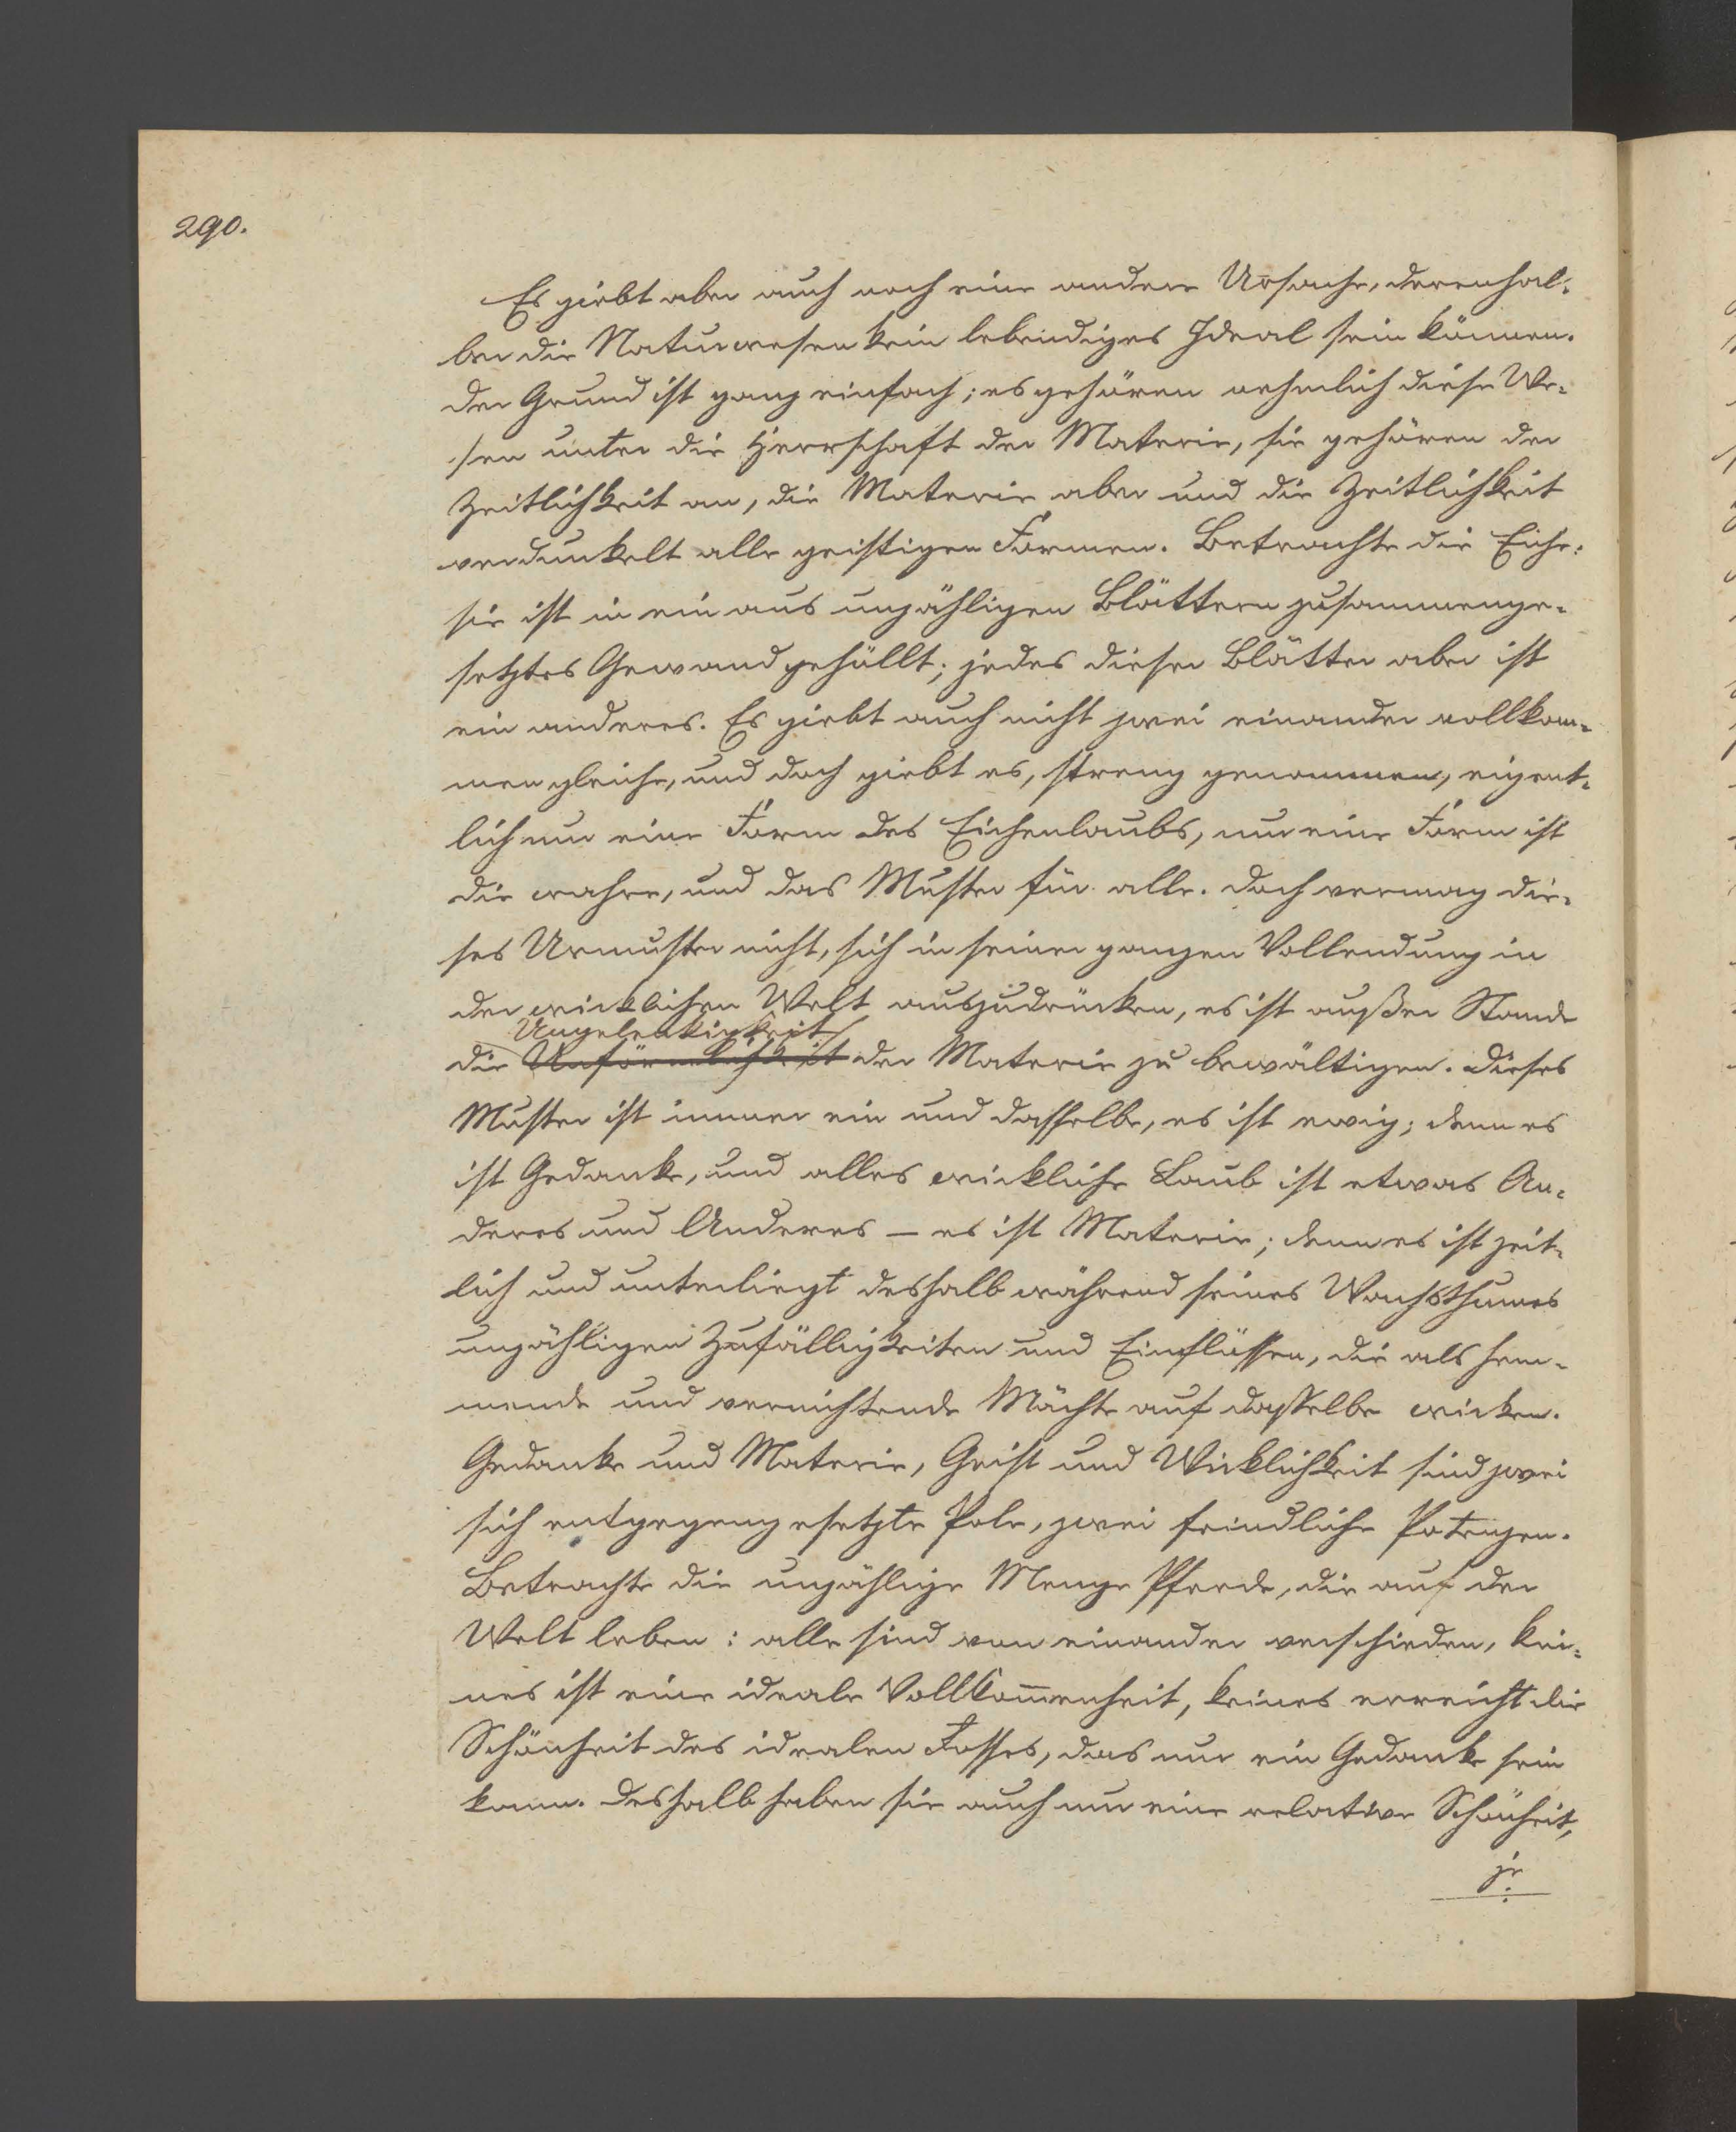 290.
Es giebt aber auch noch eine andere Ursache, derenhal-
ber die Naturwesen kein lebendiges Ideal sein können.
Der Grund ist ganz einfach; es gehören nehmlich diese We-
sen unter die Herrschaft der Materie, sie gehören der
Zeitlichkeit an, die Materie aber und die Zeitlichkeit
verdunkelt alle geistigen Formen. Betrachte die Eiche:
sie ist in ein aus unzähligen Blättern zusammenge-
setztes Gewand gehüllt; jedes dieser Blätter aber ist
ein anderes. Es giebt auch nicht zwei einander vollkom-
men gleiche, und doch giebt es, streng genommen, eigent-
lich nur eine Form des Eichenlaubs, nur eine Form ist
die wahre, und das Muster für alle. Doch vermag die-
ses Urmuster nicht, sich in seiner ganzen Vollendung in
der wirklichen Welt auszudrücken, es ist außer Stande
Ungelenkigkeit
die Unförmlichkeit der Materie zu bewältigen. Dieses
Muster ist immer ein und dasselbe, es ist ewig; denn es
ist Gedanke, und alles wirkliche Laub ist etwas An-
deres und Anderes – es ist Materie; denn es ist zeit-
lich und unterliegt deshalb während seines Wachsthumes
unzähligen Zufälligkeiten und Einflüssen, die als hem-
mende und vernichtende Mächte auf dasselbe wirken.
Gedanke und Materie, Geist und Wirklichkeit sind zwei
sich entgegengesetzte Pole, zwei feindliche Potenzen.
Betrachte die unzählige Menge Pferde, die auf der
Welt leben: alle sind von einander verschieden, kei-
nes ist eine ideale Vollkom̅enheit, keines erreicht die
Schönheit des idealen Rosses, das nur ein Gedanke sein
kann. Deshalb haben sie auch nur eine relative Schönheit,
je